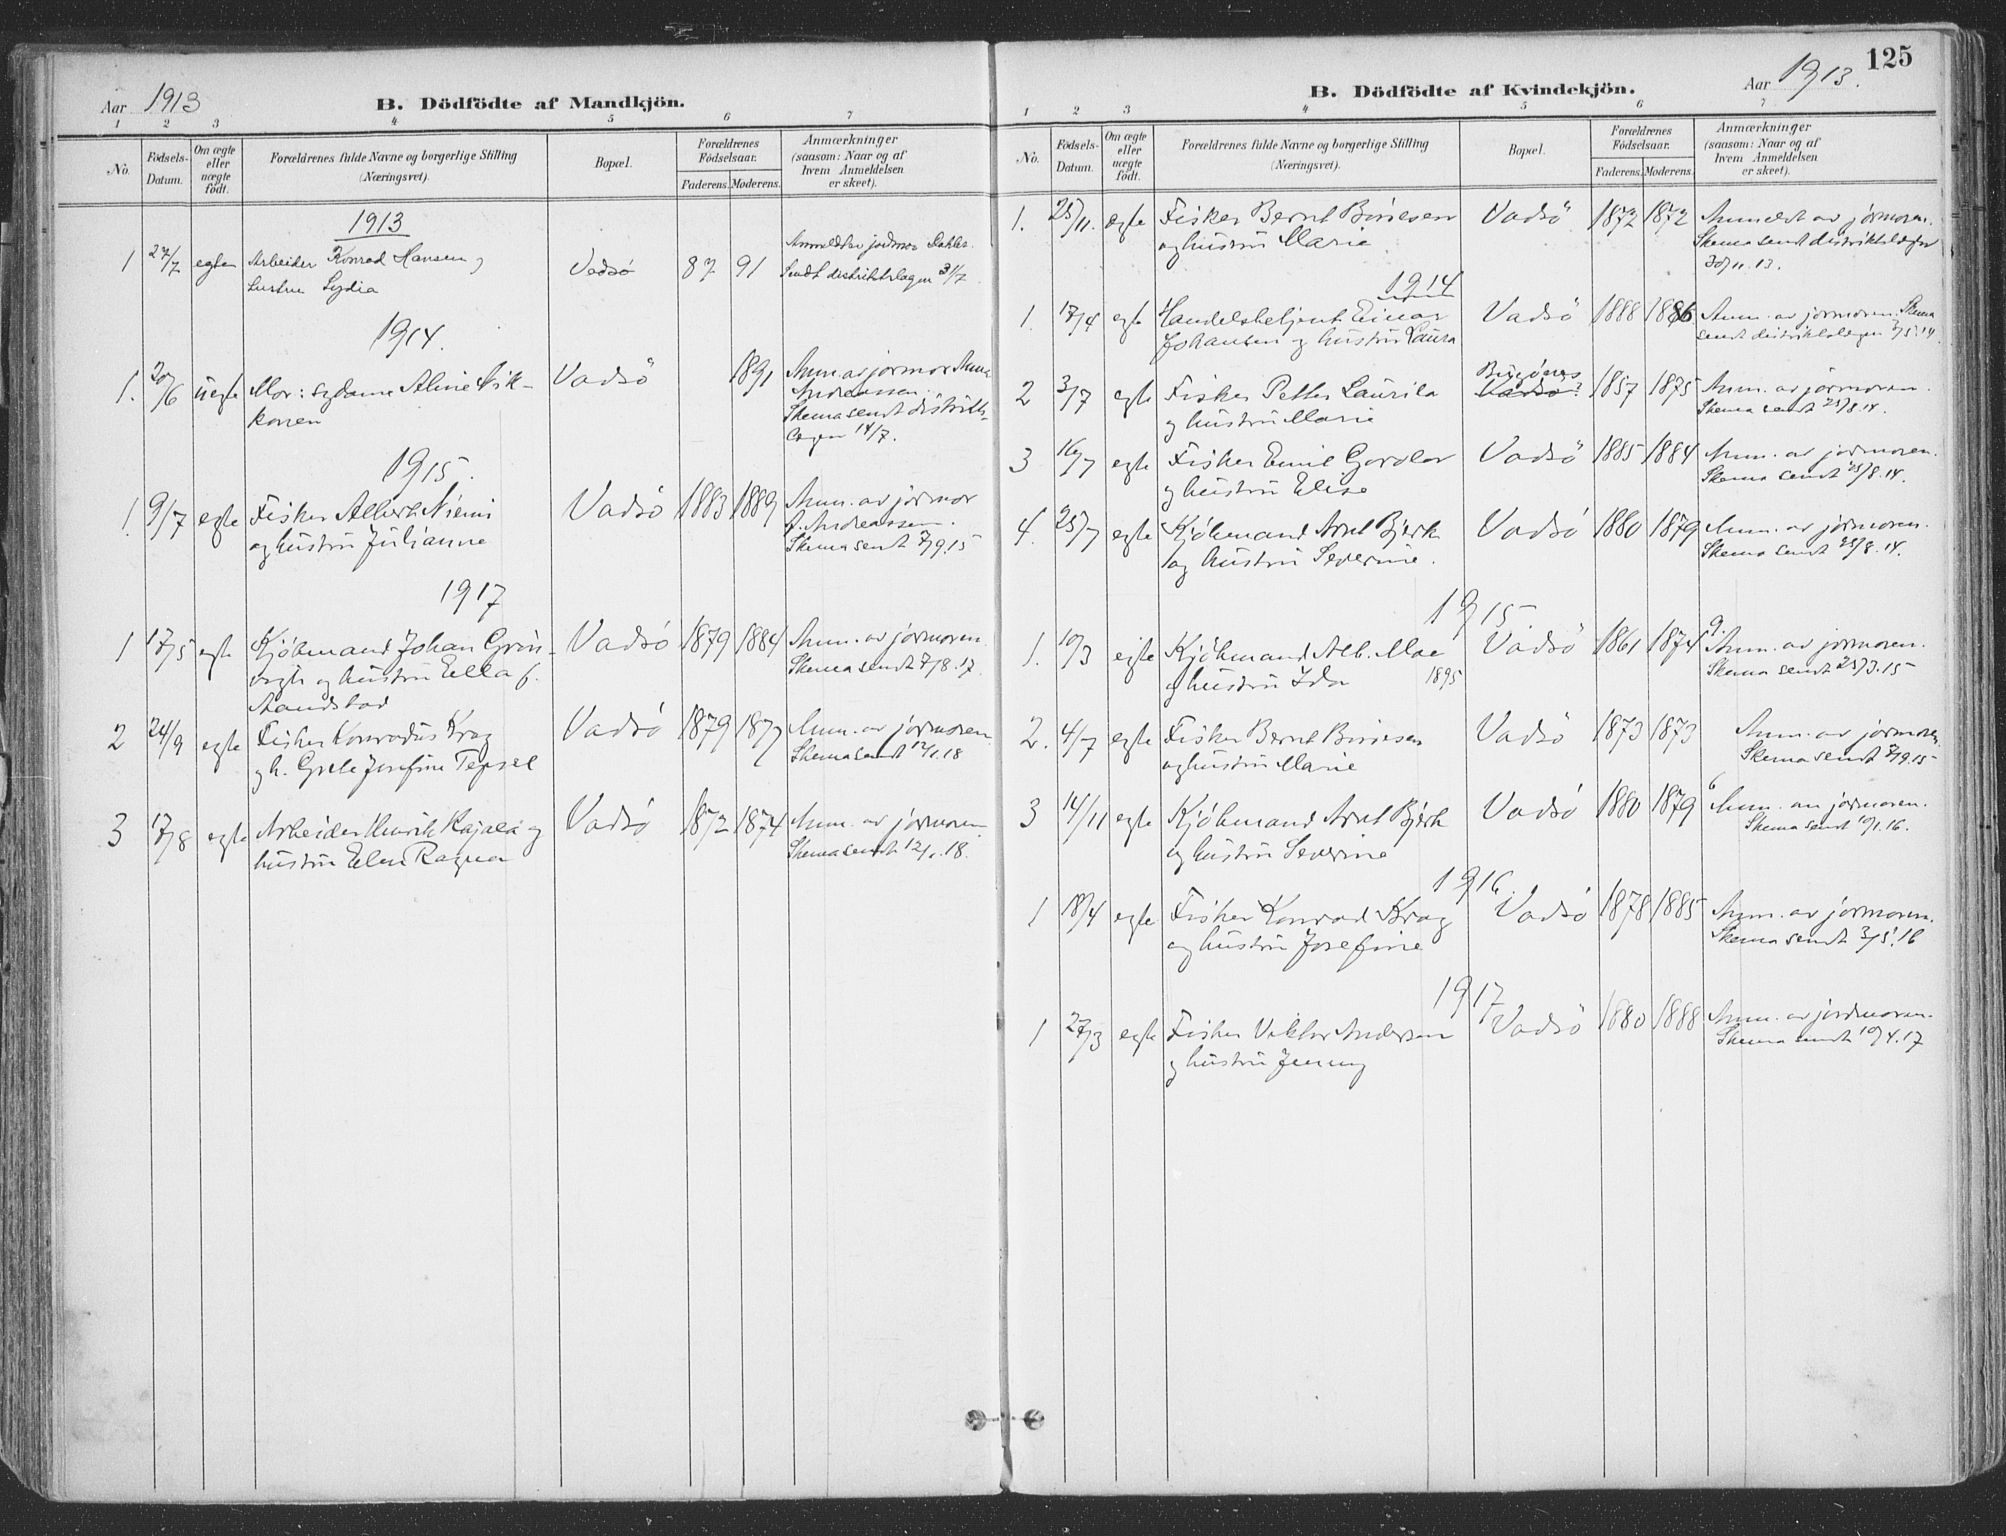 Aar 1913
B. Dödfödte af Mandkjön.
1 2 3 4 5 6 7
No.
Födsels-Datum.
Om ægte eller uægte födt.
Forældrenes fulde Navne og borgerlige Stilling (Næringsvei).
Bopæl.
Forældrenes Födselsaar.
Faderens. Moderens.
Anmærkninger (saasom: Naar og af hvem Anmeldelsen er skeet).
1913
1 27/7 egte Arbeider Konrad Hansen og Vadsø 87 91 Anmeldt av jordmor Dahler.
hustru Lydia Sendt distriktslægen 31/7
1914.
1. 20/6 uegte Mor: sydame Aline Vadsö 1891 Anm. av jormor
konen Andreassen.
Skema sendt distrikts-
lægen 14/7.
1915.
1. 9/7 egte Fisker Albert Niemi Vadsö 1883 1889 Anm. av jormor
og hustru Julianne A. Andreassen.
Skema sendt 7/9.15
1917
1 17/5 egte Kjöbmand Johan Grön- Vadsö 1879 1884 Anm. av jormoren.
vigh og hustru Ella f. Skema sendt 7/8.17.
Aandstad
2 24/9 egte Fisker Konradus Krag Vadsö 1879 1877 Anm. av jormoren.
og h. Grete Josefine Tepsel Skema sendt 12/1.18
3 17/8 egte Arbeider Henrik Kajala og Vadsö 1872 1874 Anm. av jormoren.
hustru Elen Ragna Skema sendt 12/1.18.
125
B. Dödfödte af Kvindekjön.
Aar 1913.
1 2 3 4 5 6 7
No.
Födsels-Datum.
Om ægte eller uægte födt.
Forældrenes fulde Navne og borgerlige Stilling (Næringsvei).
Bopæl.
Forældrenes Födselsaar.
Faderens. Moderens.
Anmærkninger (saasom: Naar og af hvem Anmeldelsen er skeet).
1. 25/11. egte Fisker Bernt Biriesen Vadsö 1872 1872 Anmeldt av jormoren.
og hustru Marie Skema sendt distriktslægen
30/11.13.
1914
1. 17/4 egte Handelsbetjent Einar Vadsö 1888 1886 Anm. av jormoren. Skema
Johansen og hustru Laura sendt distriktslægen 2/5.14.
Bugönes
2 3/7 egte Fisker Petter Laurila Vadsö? 1857 1875 Anm. av jormoren.
og hustru Marie Skema sendt 25/8.14.
3 16/7 egte Fisker Emil Vadsö 1885 1884 Anm. av jormoren.
og hustru Elise Skema sendt 25/8.14.
4. 25/7 egte Kjöbmand Arnt Bjerk Vadsö 1880 1879 Anm. av jormoren.
og hustru Severine. Skema sendt 25/8.14.
1915
1. 10/3 egte Kjöbmand Alb. Moe Vadsö 1861 1874 9. Anm. av jormoren.
og hustru Ida 1895 Skema sendt 25/3.15
2. 4/7 egte Fisker Bernt Biriesen Vadsö 1873 1873 Anm. av jormoren.
og hustru Marie Skema sendt 7/9.15
3 14/11 egte Kjöbmand Arnt Bjerk Vadsö 1880 1879 6 Anm. av jormoren.
og hustru Severine Skema sendt 10/1.16.
1916.
1 18/4 egte Fisker Konrad Krag Vadsö 1878 1885 Anm. av jormoren.
og hustru Josefine Skema sendt 3/5.16
1917
1 27/3 egte Fisker Viktor Andersen Vadsö 1880 1888 Anm. av jordmoren.
og hustru Jenny Skema sendt 10/4.17